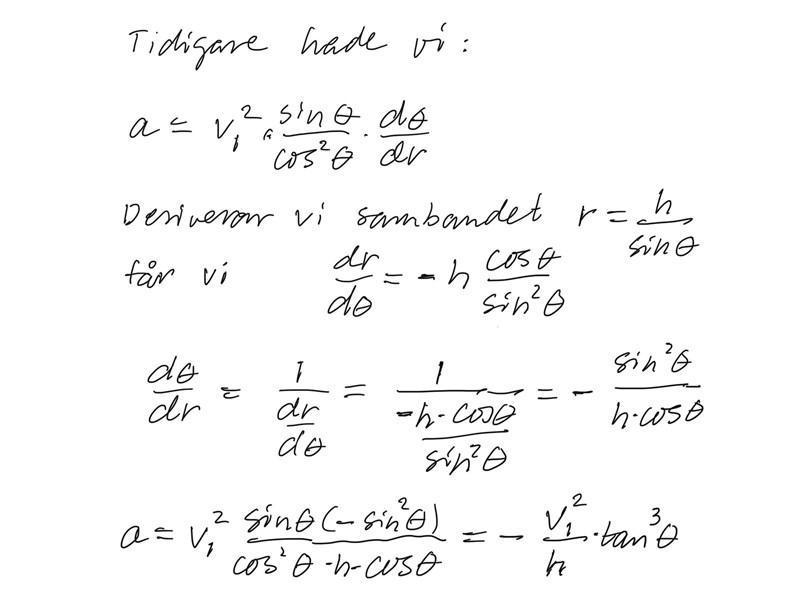 Tidigare hade vi:
a = v₁² · sinθ/cos²θ · dθ/dr
Deriverar vi sambandet r = h/sinθ
får vi dr/dθ = - h cosθ/sin²θ
dθ/dr = 1/(dr/dθ) = 1/(-h·cosθ/sin²θ) = - sin²θ/(h·cosθ)
a = v₁² sinθ(-sin²θ)/(cos²θ·h·cosθ) = - v₁²/h · tan³θ